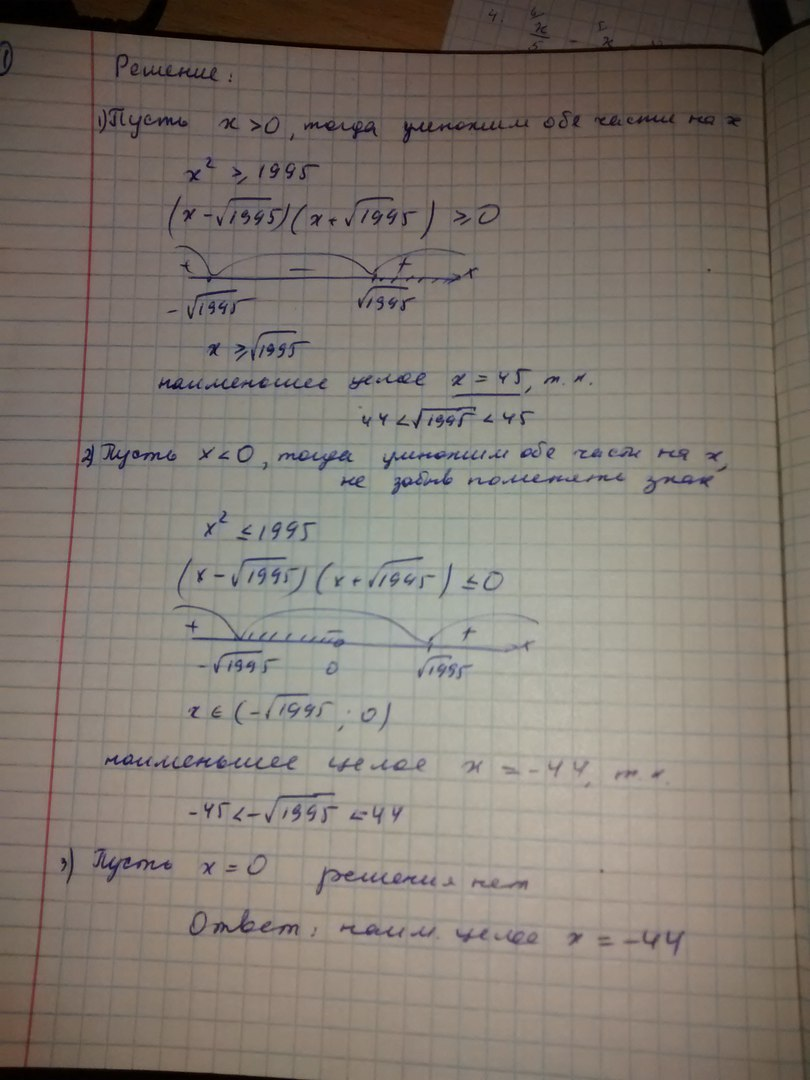 4. x/5 - 5/x
1
Решение:
1) Пусть x > 0, тогда умножим обе части на x
x² ≥ 1995
(x - √1995)(x + √1995) ≥ 0
+ − + x
-√1995 √1995
x ≥ √1995
наименьшее целое x = 45, т.к.
44 < √1995 < 45
2) Пусть x < 0, тогда умножим обе части на x,
не забыв поменять знак
x² ≤ 1995
(x - √1995)(x + √1995) ≤ 0
+ − + x
-√1995 0 √1995
x ∈ (-√1995; 0)
наименьшее целое x = -44, т.к.
-45 < -√1995 < -44
3) Пусть x = 0 решения нет
Ответ: наим. целое x = -44